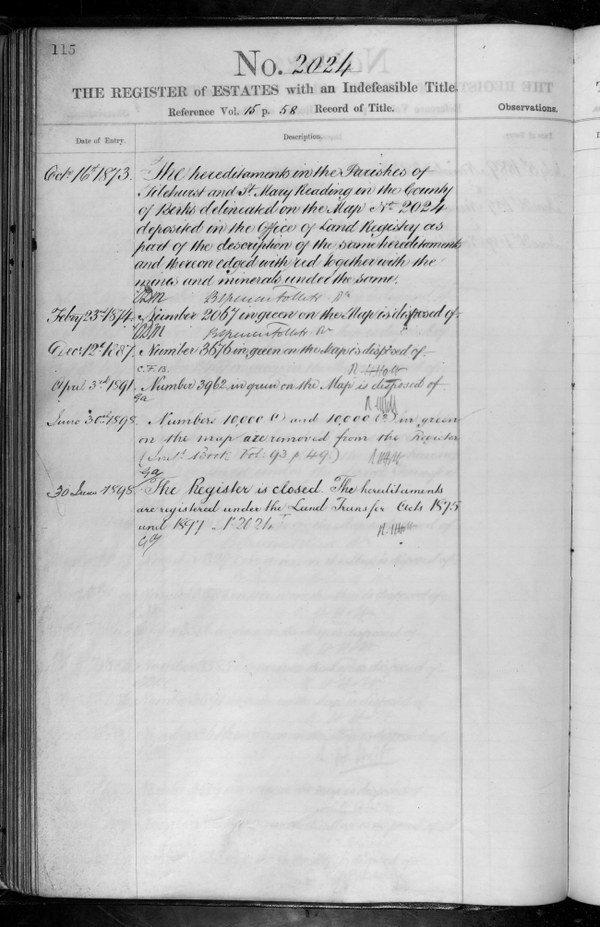 115
No. 2024
THE REGISTER of ESTATES with an Indefeasible Title.
Reference Vol. 15 p. 58 Record of Title.
Observations.
Date of Entry.
Description.
Octr 16th 1873. The hereditaments in the Parishes of
Tilehurst and St. Mary Reading in the County
of Berks delineated on the Map No. 2024
deposited in the Office of Land Registry as
part of the description of the same hereditaments
and thereon edged with red together with the
mines and minerals under the same.
B Spencer Follett Rr
Febry 23rd 1874. Number 2067 in green on the Map is disposed of
B Spencer Follett Rr
Decr 12th 1887. Number 3676 in green on the Map is disposed of
C.F.B. R. Holt
April 3rd 1891. Number 3962 in green on the Map is disposed of
ga R. Holt
June 30th 1898. Numbers 10,000 (1) and 10,000 (2) in green
on the map are removed from the Register
(Inst. Book Vol. 93 p 49) R Holt
ga
30 June 1898. The Register is closed. The hereditaments
are registered under the Land Transfer Acts 1875
and 1897 - No 2024
R. Holt